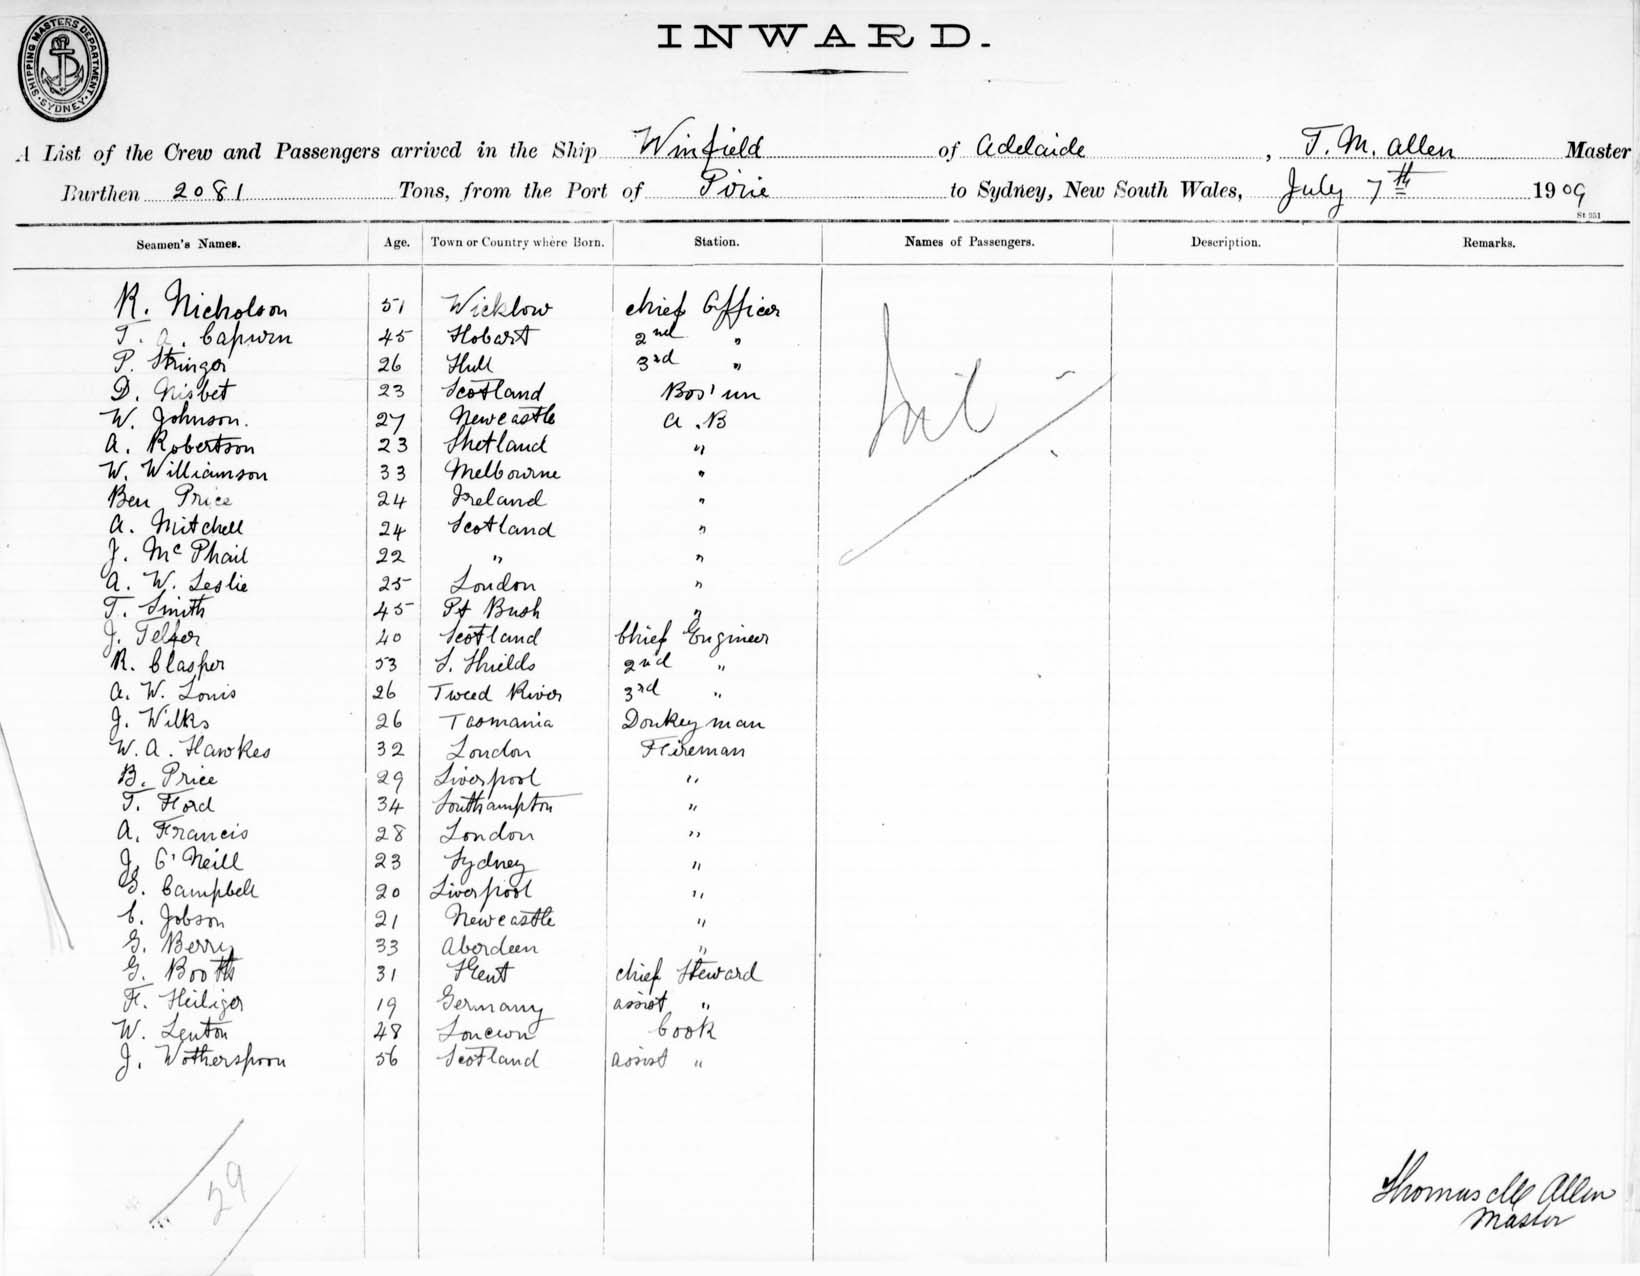 SHIPPING MASTERS DEPARTMENT. SYDNEY.
INWARD.
A List of the Crew and Passengers arrived in the Ship Winfield of Adelaide, T. M. Allen Master
Burthen 2081 Tons, from the Port of Pirie to Sydney, New South Wales, July 7th 1909
St 251
Seamen's Names. Age. Town or Country where Born. Station. Names of Passengers. Description. Remarks.
R. Nicholson 51 Wicklow Chief Officer
T. A. Capurn 45 Hobart 2nd "
P. Stringer 26 Hull 3rd "
D. Nisbet 23 Scotland Bos'un
W. Johnson. 27 Newcastle A.B
A. Robertson 23 Shetland "
W. Williamson 33 Melbourne "
Ben Price 24 Ireland "
A. Mitchell 24 Scotland "
J. McPhail 22 " "
A. W. Leslie 25 London "
T. Smith 45 Pt Bush "
J. Telfer 40 Scotland Chief Engineer
R. Clasper 53 S. Shields 2nd "
A. W. Louis 26 Tweed River 3rd "
J. Wilks 26 Tasmania Donkeyman
W. A. Hawkes 32 London Fireman
B. Price 29 Liverpool "
T. Ford 34 Southampton "
A. Francis 28 London "
J. O'Neill 23 Sydney "
G. Campbell 20 Liverpool "
C. Jobson 21 Newcastle "
G. Berry 33 Aberdeen "
G. Booth 31 Kent Chief Steward
F. Heiliger 19 Germany assist "
W. Lenton 48 Cook
J. Wotherspoon 56 Scotland assist "
Nil
29
Thomas M Allen
Master